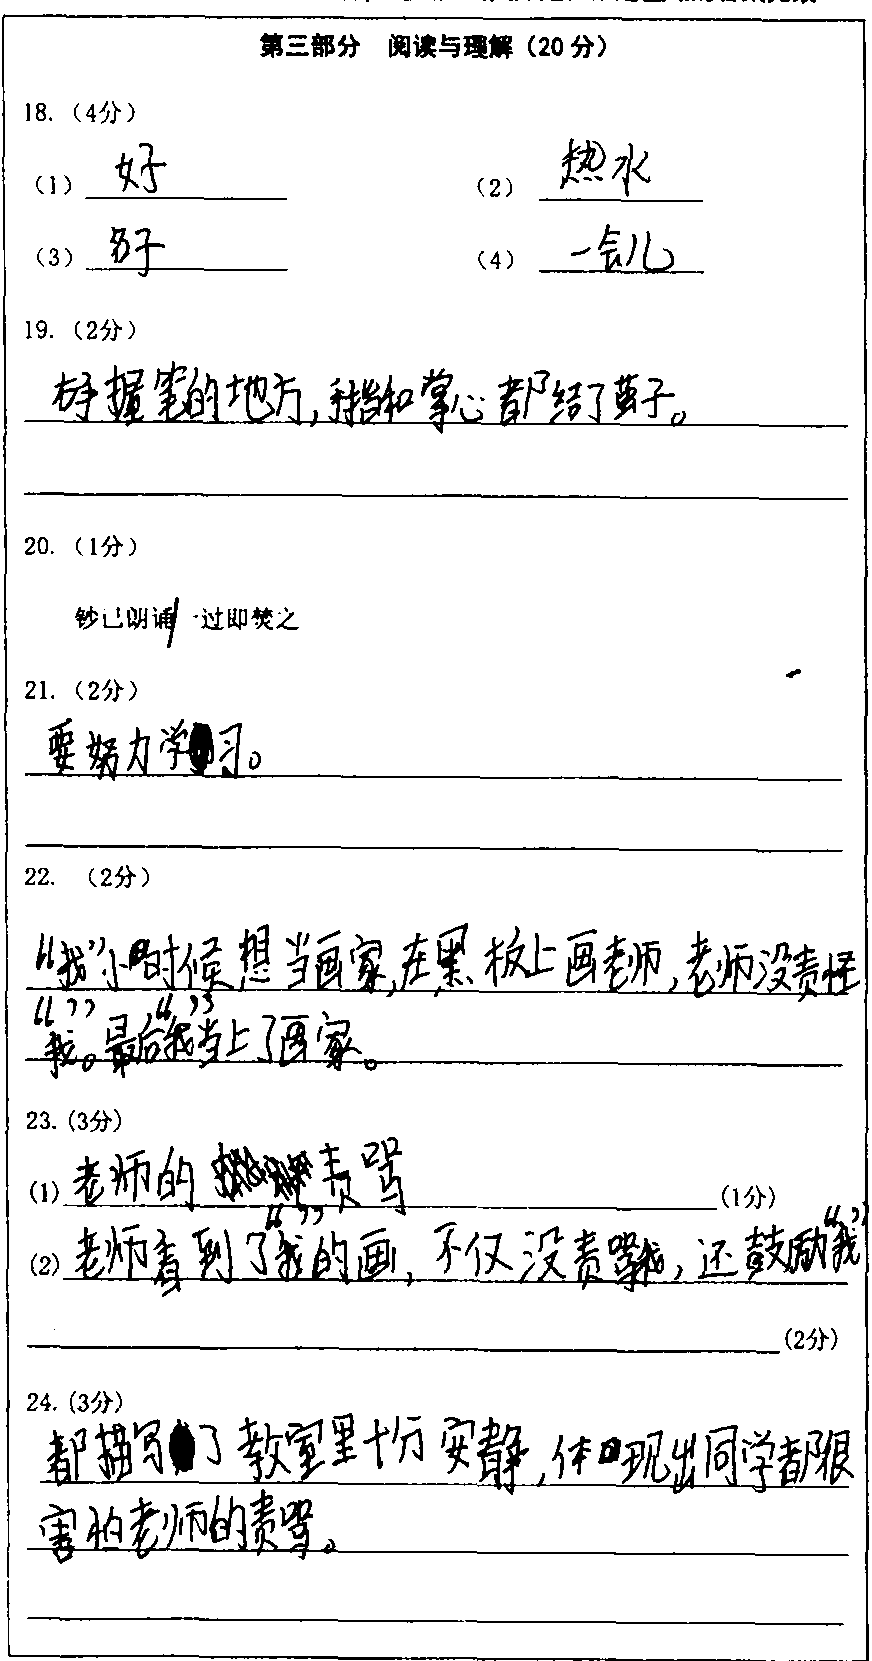 第三部分 阅读与理解（20 分）
18.（4分）
（1） 好 （2） 热水
（3） 好 （4） 一会儿
19.（2分）
右手握笔的地方,手指和掌心都结了茧子。
20.（1分）
钞已朗诵/一过即焚之
21.（2分）
要努力学习。
22. （2分）
“我”小时候想当画家,在黑板上画老师,老师没责怪
“我”。最后“我”当上了画家。
23.(3分)
(1) 老师的责骂 (1分)
(2) 老师看到了“我”的画,不仅没责骂我,还鼓励“我”
(2分)
24.(3分)
都描写了教室里十分安静,体现出同学都很
害怕老师的责骂。